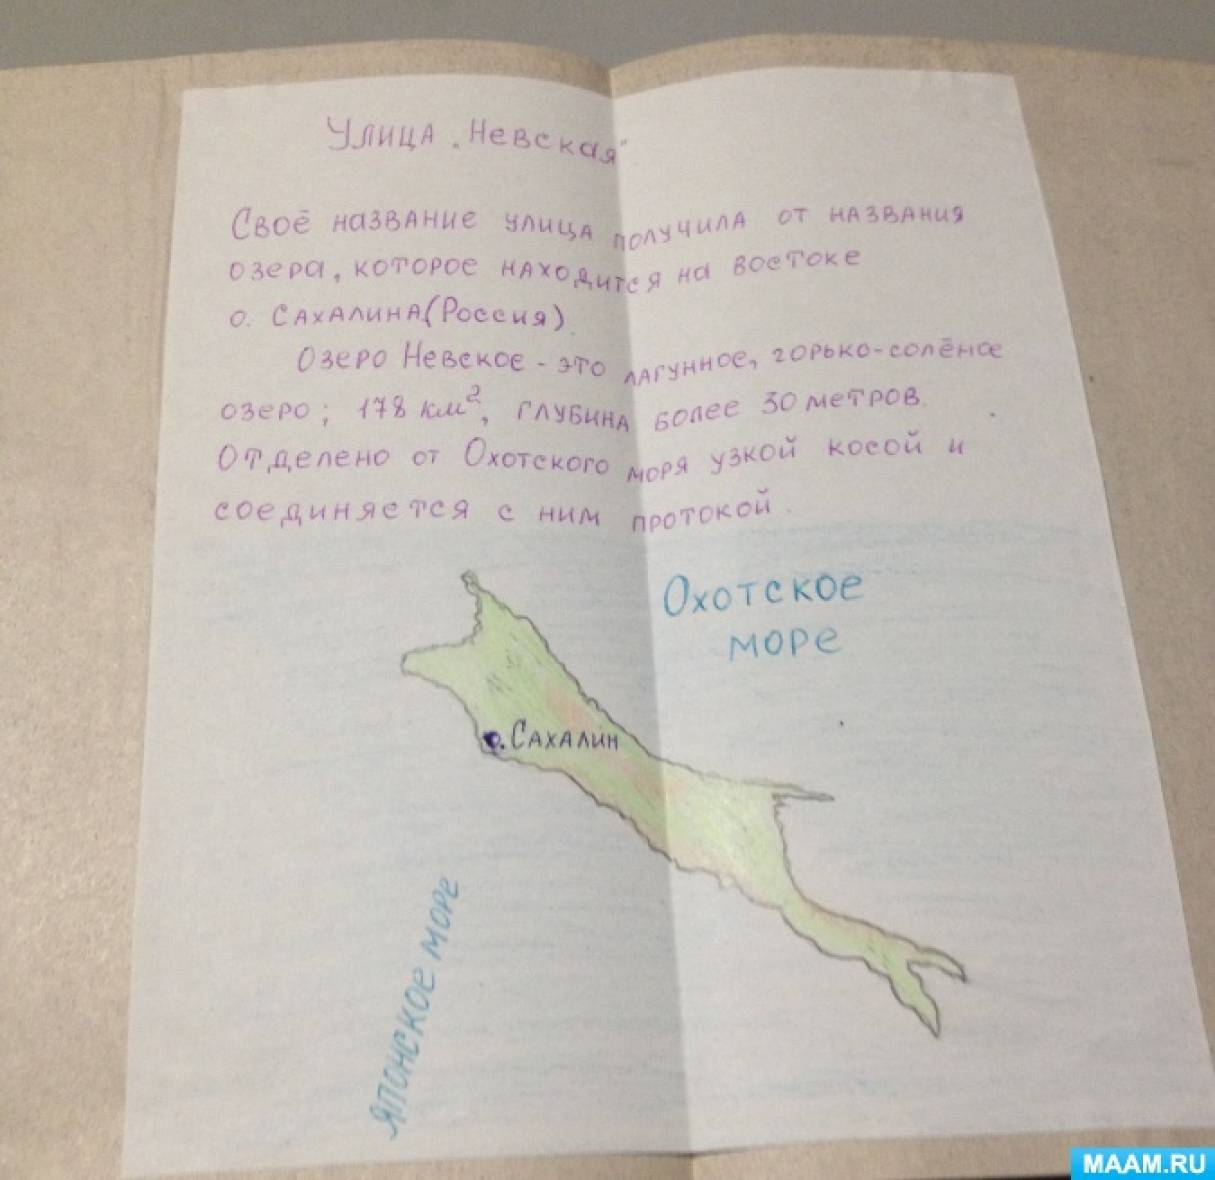 Улица „Невская"
Своё название улица получила от названия
озера, которое находится на востоке
о. Сахалина (Россия).
Озеро Невское - это лагунное, горько-солёное
озеро; 178 км², глубина более 30 метров.
Отделено от Охотского моря узкой косой и
соединяется с ним протокой.
Охотское
море
о. Сахалин
Японское море
MAAM.RU